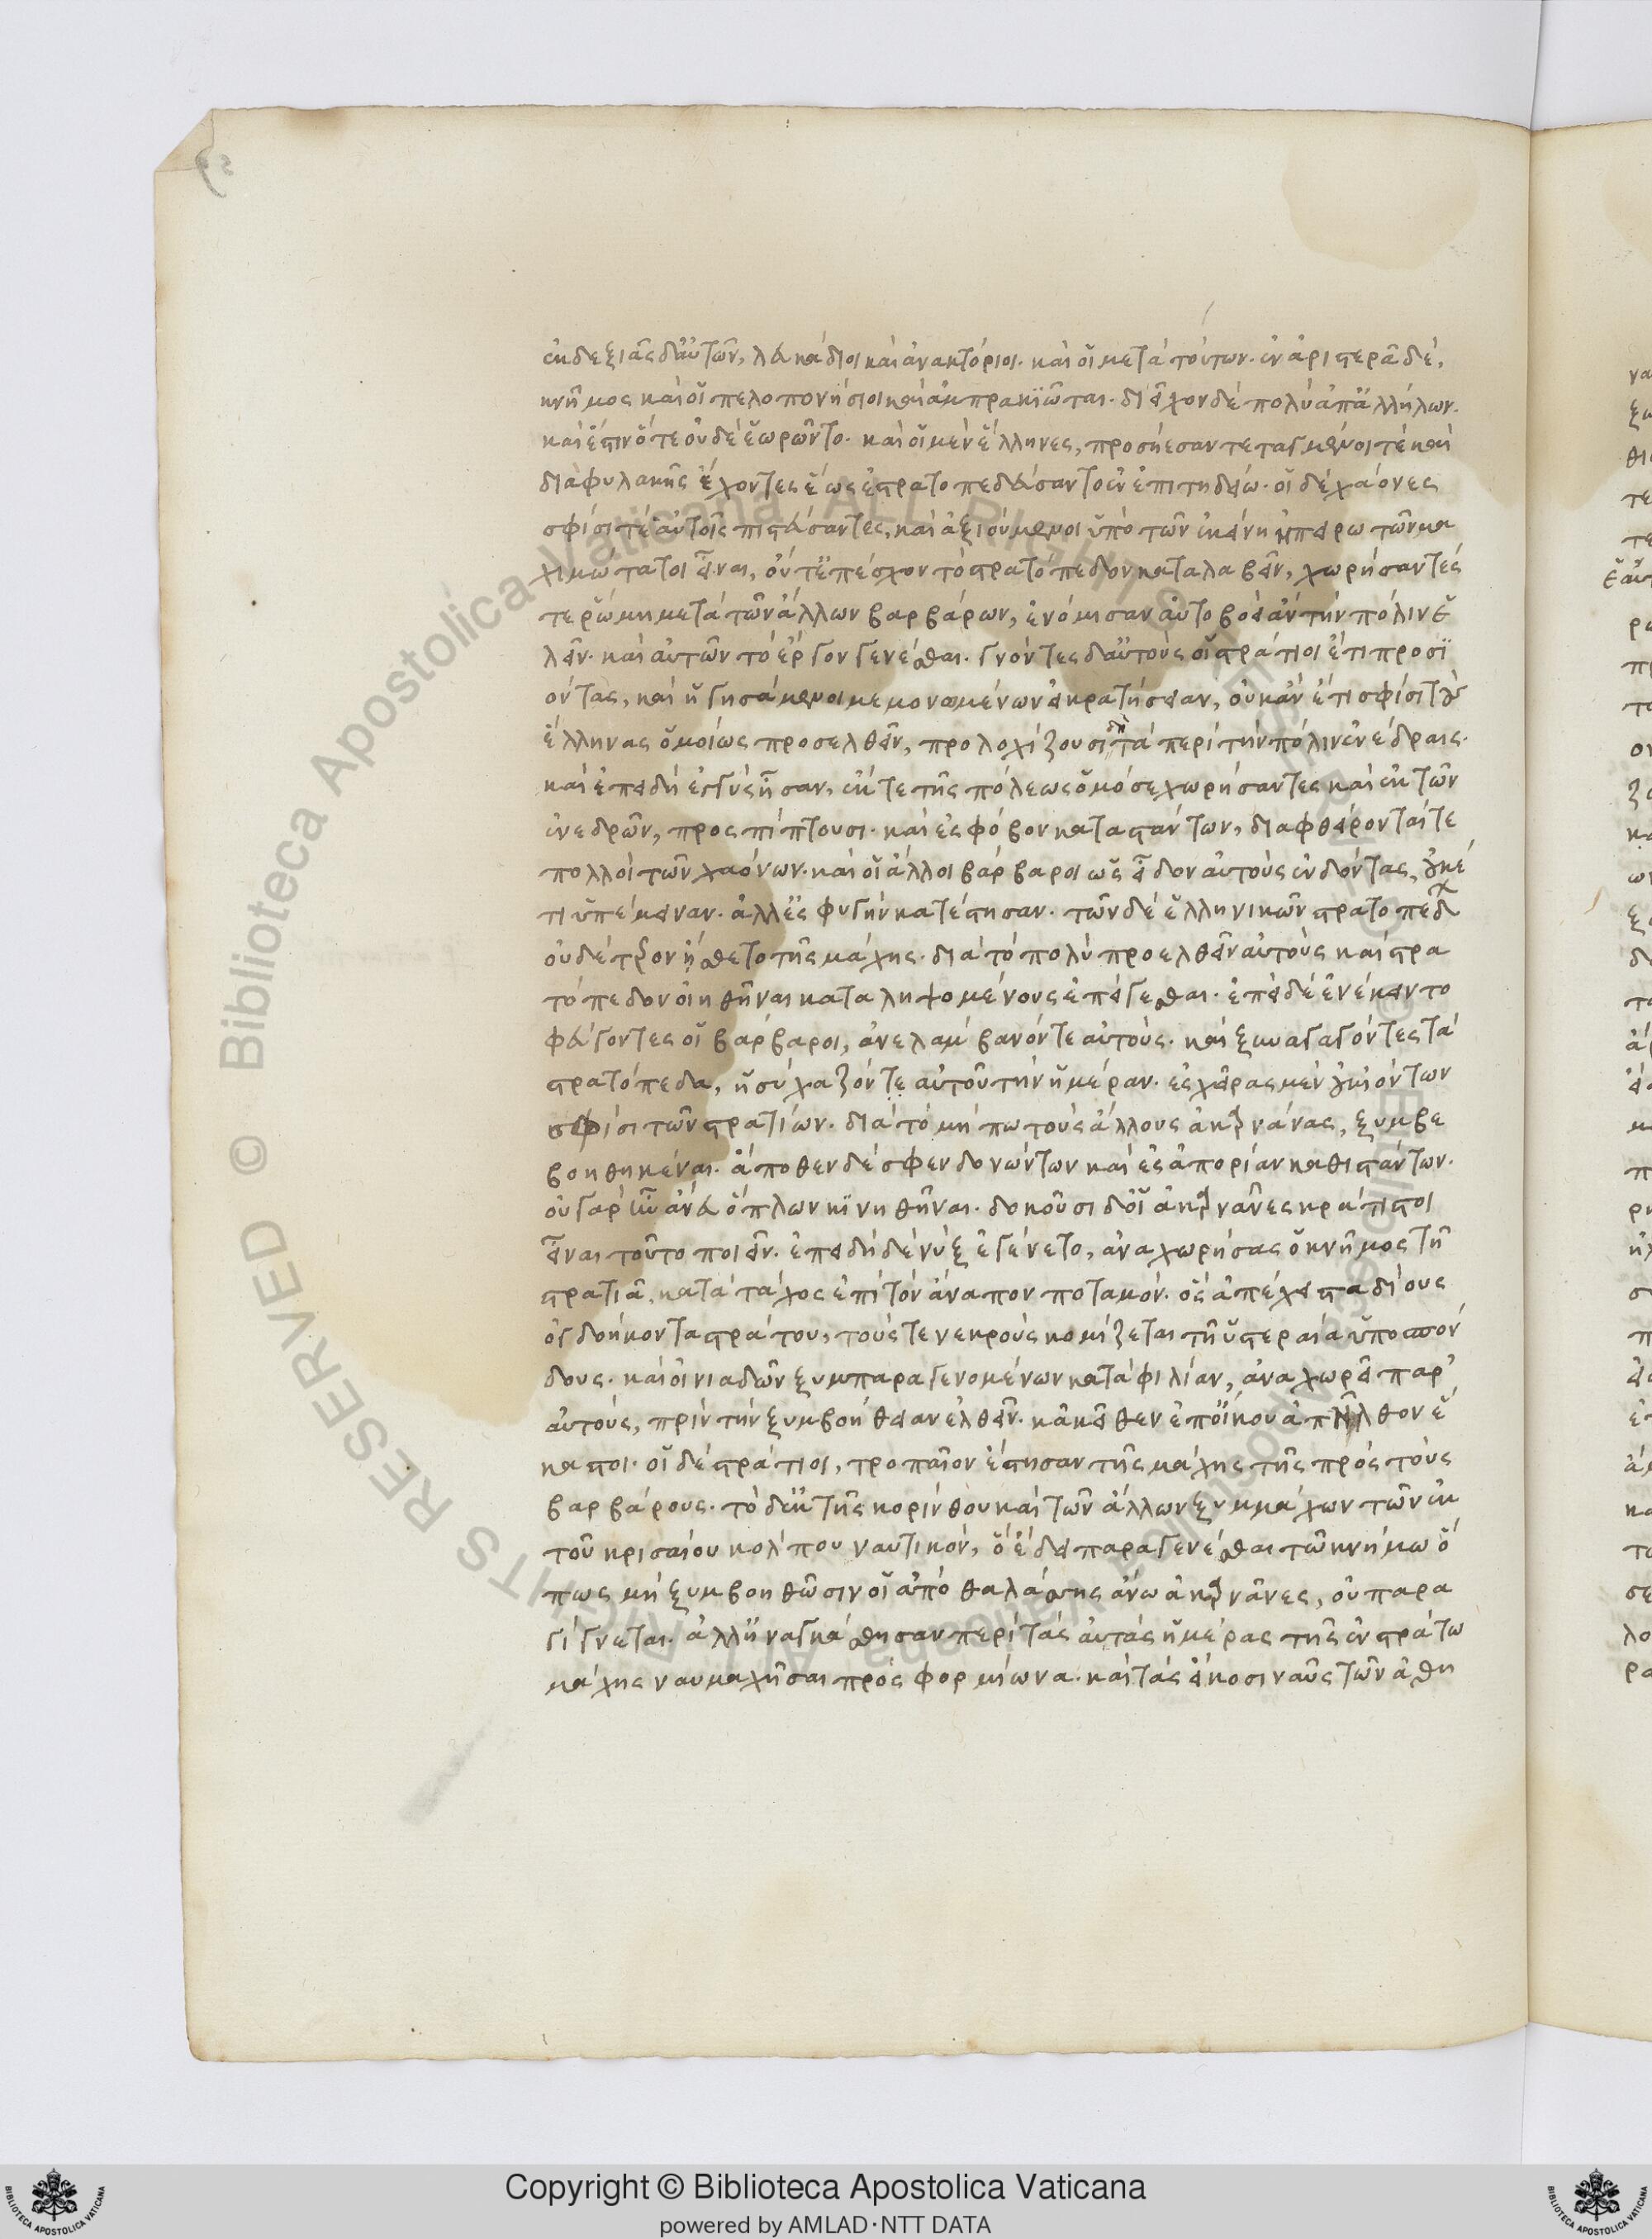 ἐκ δεξιᾶς δ' αὐτῶν, λευκάδιοι καὶ ἀνακτόριοι. καὶ οἱ μετὰ τούτων. ἐν ἀριστερᾷ δὲ,
κνῆμος καὶ οἱ πελοπονήσιοι καὶ ἀμπρακιῶται. διεῖχον δὲ πολὺ ἀπ' ἀλλήλων.
καὶ ἔστιν ὅτε οὐδὲ ἑωρῶντο. καὶ οἱ μὲν ἕλληνες, προσῄεσαν τεταγμένοι τὲ καὶ
διὰ φυλακῆς ἔχοντες ἕως ἐστρατοπεδεύσαντο ἐν ἐπιτηδείω. οἱ δὲ χάονες
σφίσι τὲ αὐτοῖς πιστεύσαντες, καὶ ἀξιούμενοι ὑπὸ τῶν ἐκείνη ἠπειρωτῶν μα
χιμώτατοι εἶναι, οὔτ' ἐπέσχον τὸ στρατόπεδον καταλαβεῖν, χωρήσαντές
τε ῥώμη μετὰ τῶν ἄλλων βαρβάρων, ἐνόμισαν αὐτοβοεὶ ἂν τὴν πόλιν ἑ
λεῖν. καὶ αὐτῶν τὸ ἔργον γενέσθαι. γνόντες δ' αὐτοὺς οἱ στράτιοι ἔτι προσϊ
όντας, καὶ ἡγησάμενοι μεμονωμένων εἰ κρατήσειαν, οὐκ ἂν ἔτι σφίσι τοὺς
ἕλληνας ὁμοίως προσελθεῖν, προλοχίζουσι δὴ τὰ περὶ τὴν πόλιν ἐνέδραις.
καὶ ἐπειδὴ ἐγγὺς ἦσαν, ἔκ τε τῆς πόλεως ὁμόσε χωρήσαντες καὶ ἐκ τῶν
ἐνεδρῶν, προσπίπτουσι. καὶ ἐς φόβον καταστάντων, διαφθείρονταί τε
πολλοὶ τῶν χαόνων. καὶ οἱ ἄλλοι βάρβαροι ὡς εἶδον αὐτοὺς ἐνδόντας, οὐκέ
τι ὑπέμειναν. ἀλλ' ἐς φυγὴν κατέστησαν. τῶν δὲ ἑλληνικῶν στρατοπέδων
οὐδέτερον ᾔσθετο τῆς μάχης. διὰ τὸ πολὺ προελθεῖν αὐτοὺς καὶ στρα
τόπεδον οἰηθῆναι καταληψομένους ἐπείγεσθαι. ἐπεὶ δὲ ἐνέκειντο
φεύγοντες οἱ βάρβαροι, ἀνελάμβανόν τε αὐτούς. καὶ ξυναγαγόντες τὰ
στρατόπεδα, ἡσύχαζόν τε αὐτοῦ τὴν ἡμέραν. ἐς χεῖρας μὲν οὐκ ἰόντων
σφίσι τῶν στρατίων. διὰ τὸ μήπω τοὺς ἄλλους ἀκαρνάνας, ξυμβε
βοηθηκέναι. ἄποθεν δὲ σφενδονώντων καὶ ἐς ἀπορίαν καθιστάντων.
οὐ γὰρ ἦν ἄνευ ὅπλων κινηθῆναι. δοκοῦσι δ' οἱ ἀκαρνᾶνες κράτιστοι
εἶναι τοῦτο ποιεῖν. ἐπειδὴ δὲ νὺξ ἐγένετο, ἀναχωρήσας ὁ κνῆμος τῇ
στρατιᾷ, κατὰ τάχος ἐπὶ τὸν ἄναπον ποταμόν. ὃς ἀπέχει σταδίους
ὀγδοήκοντα στράτου, τούς τε νεκροὺς κομίζεται τῇ ὑστεραία ὑποσπόν
δους. καὶ οἰνιαδῶν ξυμπαραγενομένων κατὰ φιλίαν, ἀναχωρεῖ παρ'
αὐτοὺς, πρὶν τὴν ξυμβοήθειαν ἐλθεῖν. κἀκεῖθεν ἐπ' οἴκου ἀπῆλθον ἕ
καστοι. οἱ δὲ στράτιοι, τροπαῖον ἔστησαν τῆς μάχης τῆς πρὸς τοὺς
βαρβάρους. τὸ δ' ἐκ τῆς κορίνθου καὶ τῶν ἄλλων ξυμμάχων τῶν ἐκ
τοῦ κρισαίου κόλπου ναυτικὸν, ὃ ἔδει παραγενέσθαι τῶ κνήμω ὅ
πως μὴ ξυμβοηθῶσιν οἱ ἀπὸ θαλάσσης ἄνω ἀκαρνᾶνες, οὐ παρα
γίγνεται. ἀλλ' ἠναγκάσθησαν περὶ τὰς αὐτὰς ἡμέρας τῆς ἐν στράτω
μάχης ναυμαχῆσαι πρὸς φορμίωνα. καὶ τὰς εἴκοσι ναῦς τῶν ἀθη
Copyright © Biblioteca Apostolica Vaticana
powered by AMLAD·NTT DATA